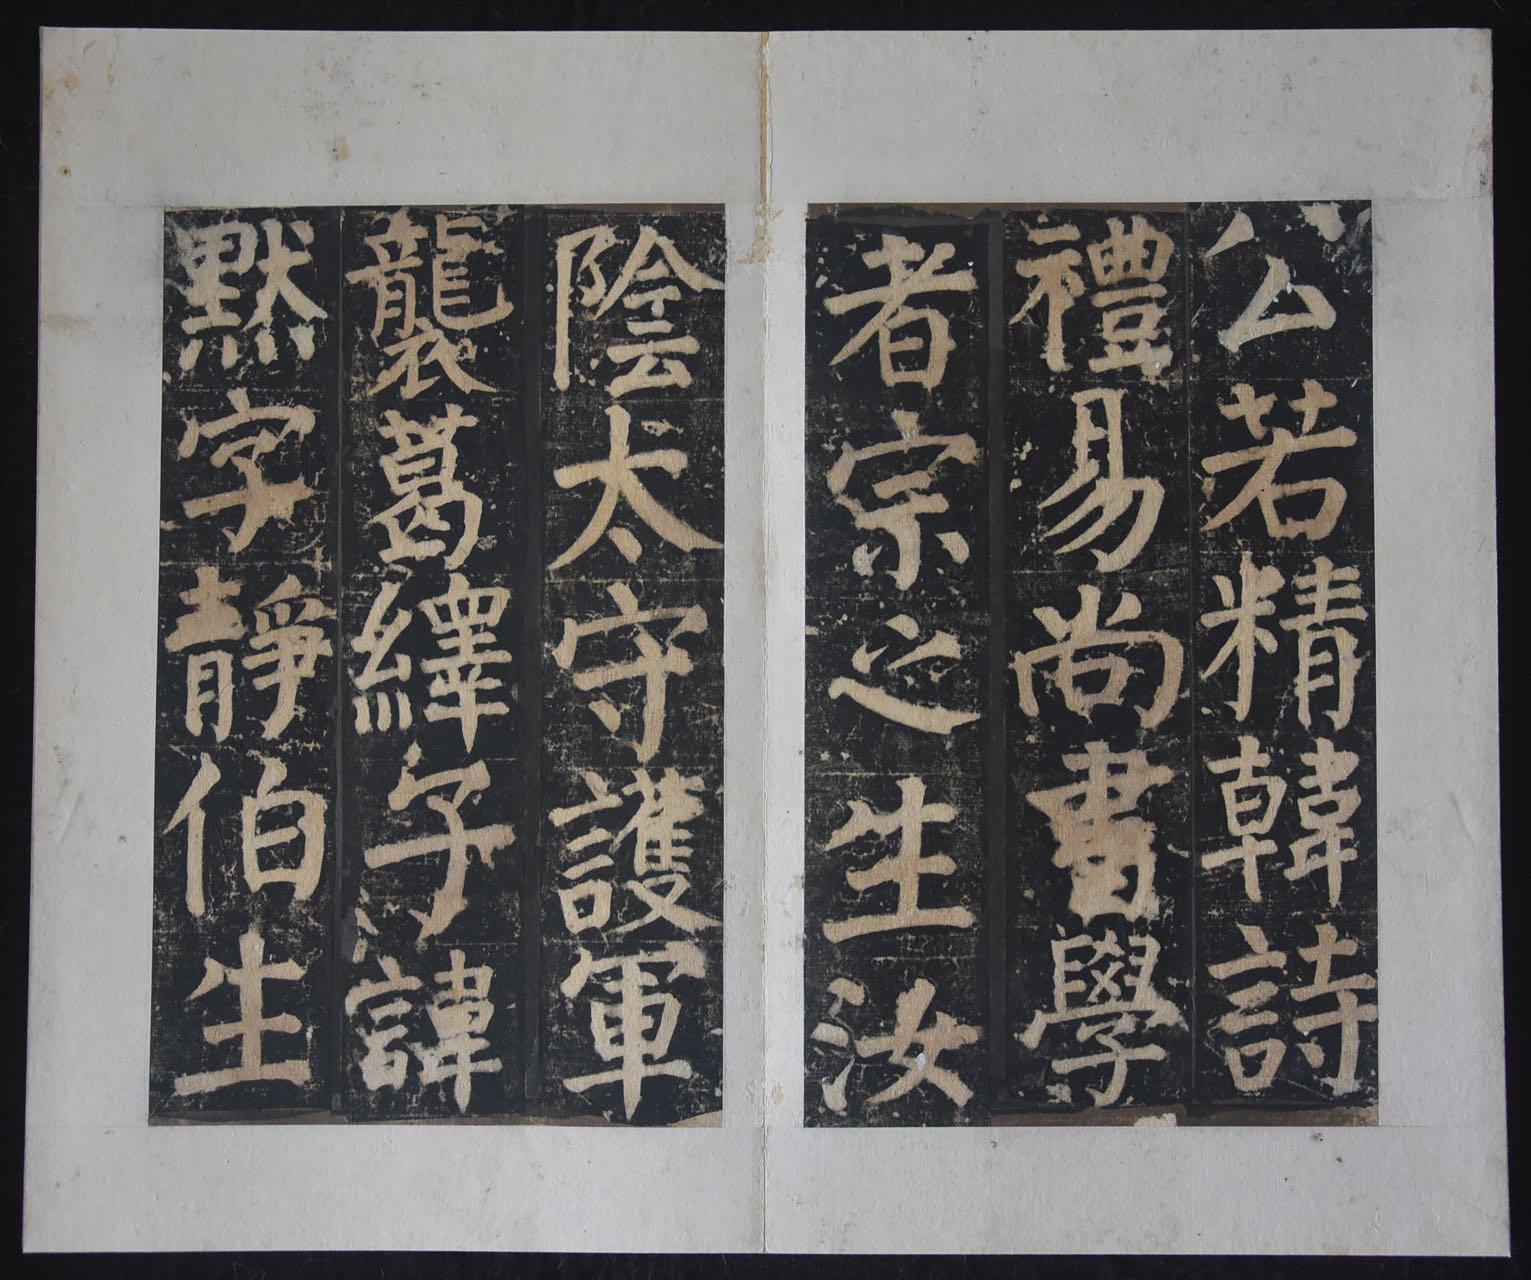 公若精韓詩
禮易尚書學
者宗之生汝
陰太守護軍
襲葛繹子諱
默字靜伯生